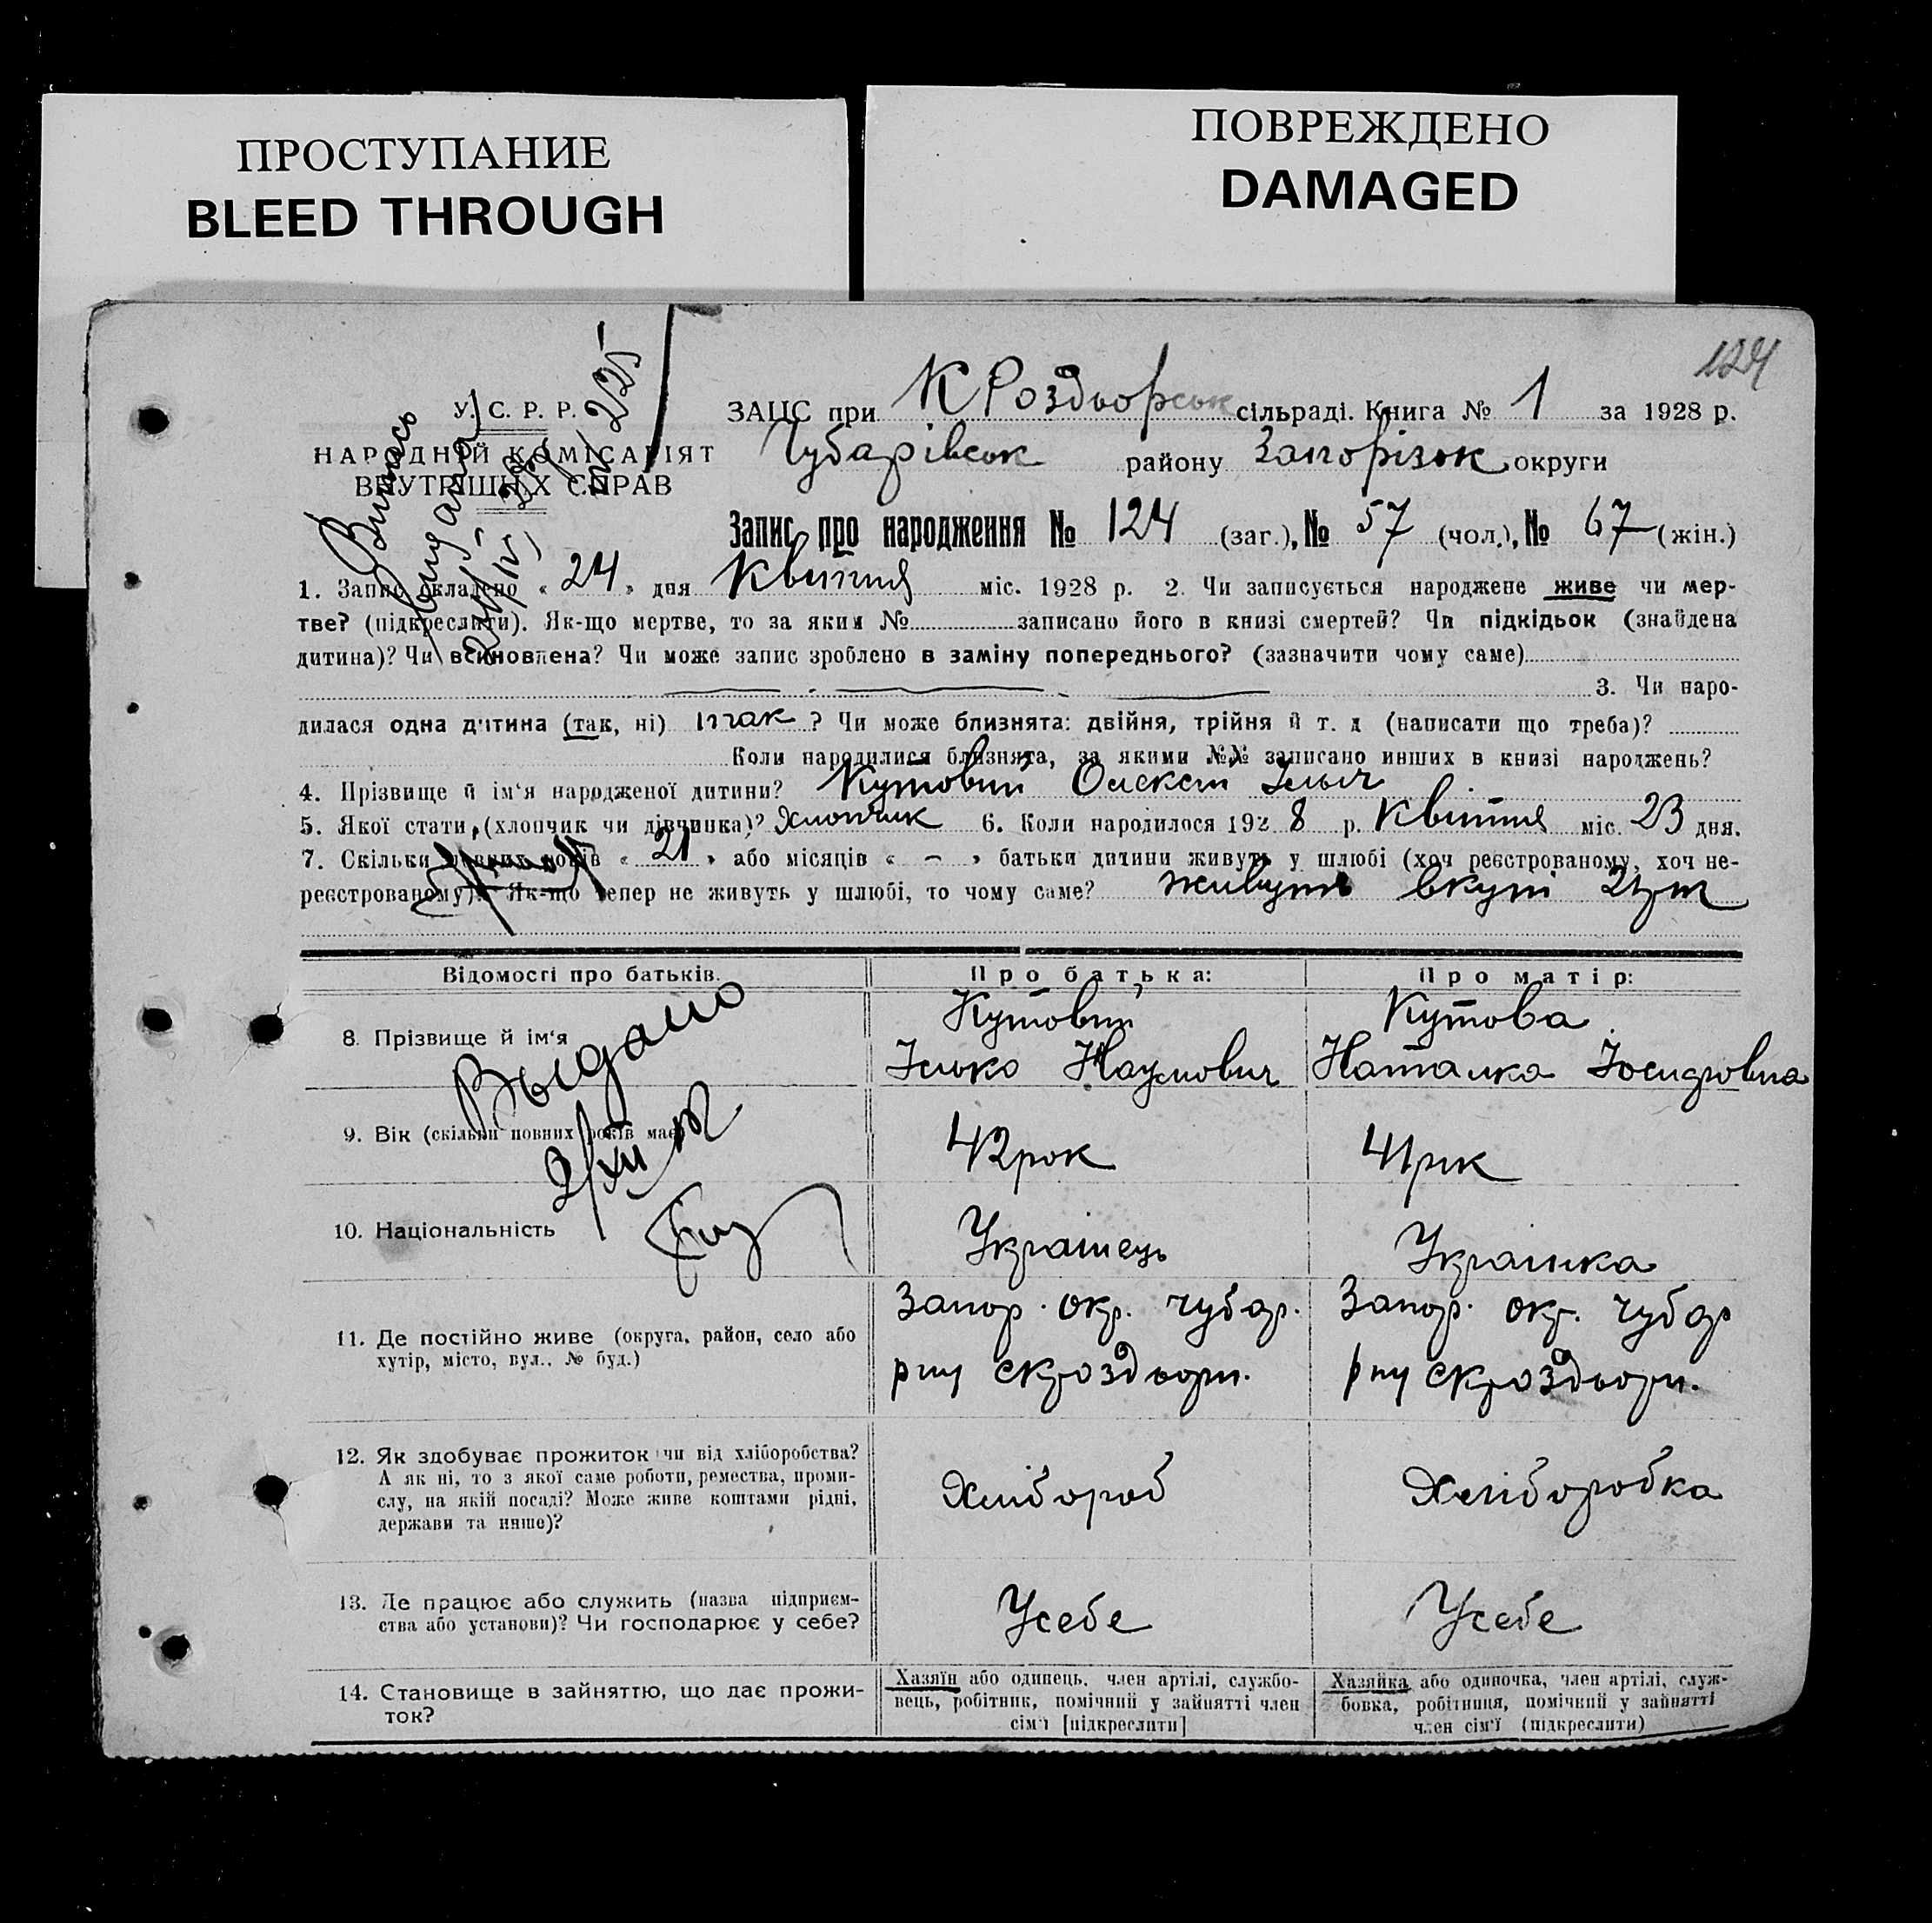 ПРОСТУПАНИЕ
BLEED THROUGH
ПОВРЕЖДЕНО
DAMAGED
124
У. С. Р. Р.
НАРОДНІЙ КОМІСАРІЯТ
ВНУТРІШНІХ СПРАВ
ЗАЦС при К Роздьорськ сільраді. Книга № 1 за 1928 р.
Чубарівськ району Запорізьк округи
Запис про народження № 124 (заг.), № 57 (чол.), № 67 (жін.)
1. Запис складено « 24 » дня Квітня міс. 1928 р. 2. Чи записується народжене живе чи мер-
тве? (підкреслити). Як-що мертве, то за яким № записано його в книзі смертей? Чи підкідьок (знайдена
дитина)? Чи всиновлена? Чи може запис зроблено в заміну попереднього? (зазначити чому саме)
3. Чи наро-
дилася одна дитина (так, ні) так ? Чи може близнята: двійня, трійня й т. д (написати що треба)?
Коли народилися близнята, за якими №№ записано инших в книзі народжень?
4. Прізвище й ім'я народженої дитини? Кутовий Олексій Ільич
5. Якої стати, (хлопчик чи дівчинка)? Хлопчик 6. Коли народилося 192 8 р. Квітня міс. 23 дня.
7. Скільки повних років « 21 » або місяців « – » батьки дитини живуть у шлюбі (хоч реєстрованому, хоч не-
реєстрованому)? Як-що тепер не живуть у шлюбі, то чому саме? живуть вкупі
Відомості про батьків.
Про батька:
Про матір:
8. Прізвище й ім'я
Кутовий
Ілько Наумович
Кутова
Наталка
Выдано
9. Вік (скільки повних років має)
42 рок
41 рік
10. Національність
Українець
Українка
11. Де постійно живе (округа, район, село або
хутір, місто, вул., № буд.)
Запор. окр. чубар.
рну скроздьори.
Запор. окр. чубар
рну скроздьори.
12. Як здобуває прожиток чи від хліборобства?
А як ні, то з якої саме роботи, ремества, проми-
слу, на якій посаді? Може живе коштами рідні,
держави та инше)?
Хлібороб
Хліборобка
13. Де працює або служить (назва підприєм-
ства або установи)? Чи господарює у себе?
Усебе
Усебе
14. Становище в зайняттю, що дає прожи-
ток?
Хазяїн або одинець, член артілі, службо-
вець, робітник, помічний у зайнятті член
сім'ї [підкреслити]
Хазяйка або одиночка, член артілі, служ-
бовка, робітниця, помічний у зайнятті
член сім'ї (підкреслити)